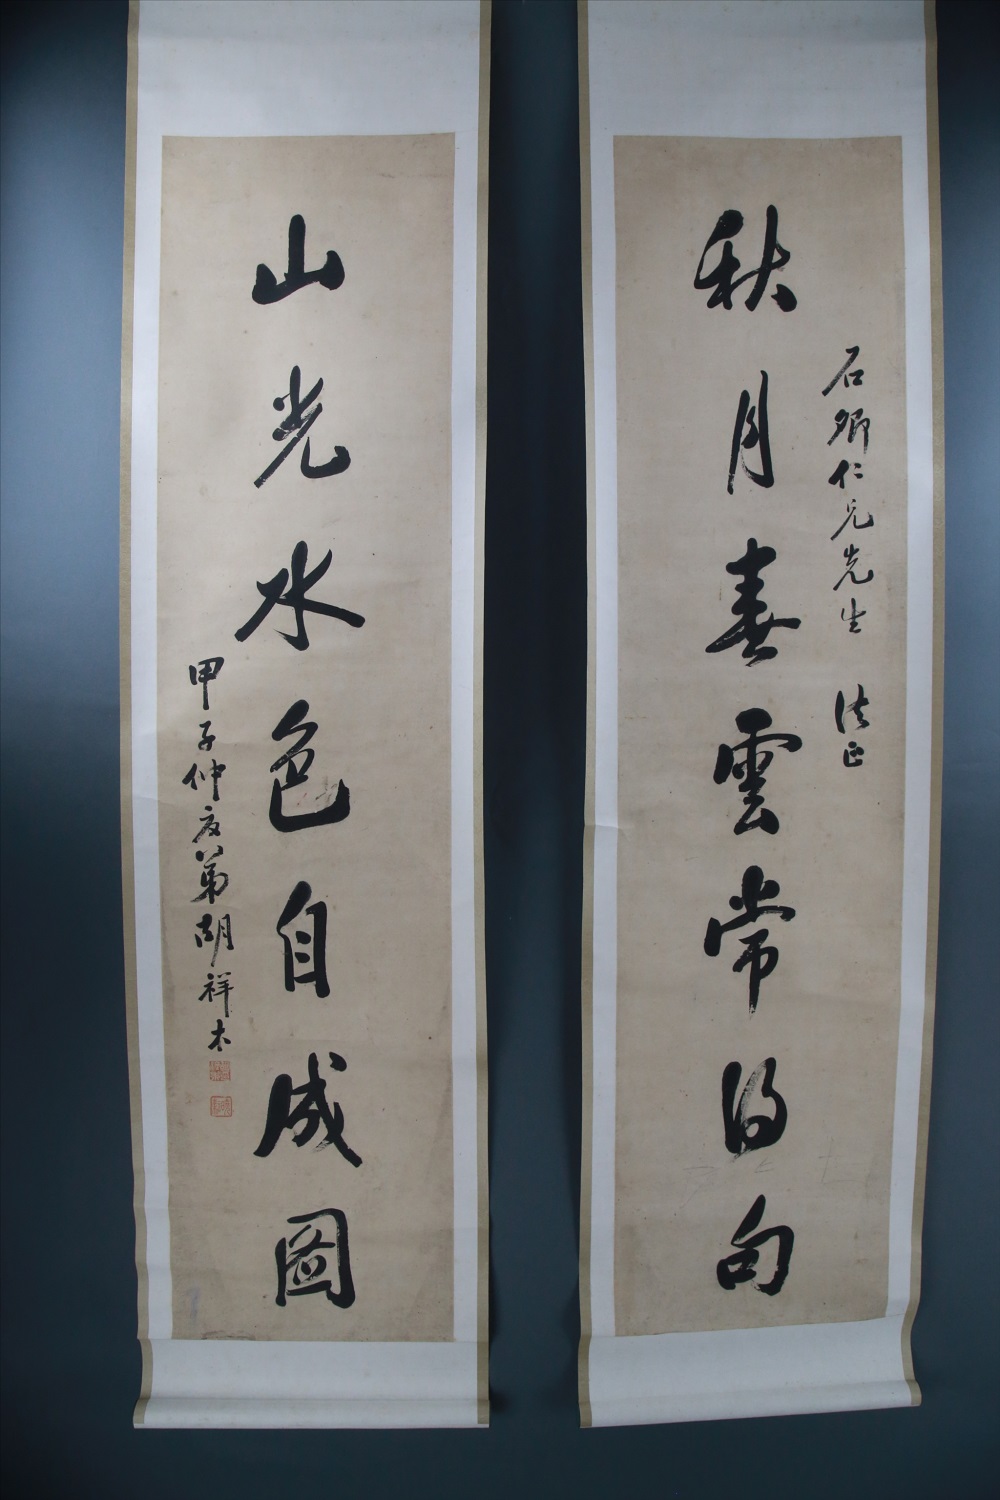 石卿仁兄先生 法正
秋月春雲常得句
山光水色自成圖
甲子仲夏弟胡祥木